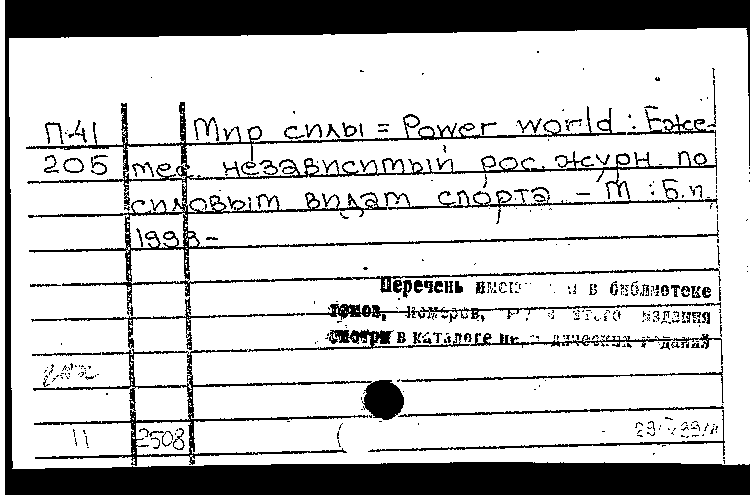 П-41 Мир силы = Power world : Еже-
205 мес. независимый рос. журн. по
силовым видам спорта. - М : Б.и.,
1998-
Перечень в библиотеке
томов, номеров, этого издания
смотри в каталоге изданий
11 2508